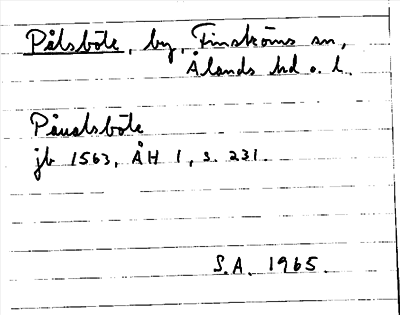 Pålsböle, by, Finströms sn,
Ålands hd o. l.
Påualsböle
jb 1563, ÅH 1, s. 231.
S.A. 1965.